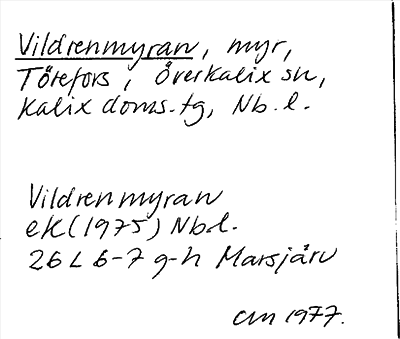 Vildrenmyran, myr,
Törefors, Överkalix sn,
Kalix doms. tg, Nb. l.
Vildrenmyran
ek (1975) Nb.l.
26 L 6-7 g-h Marsjärv
CM 1977.